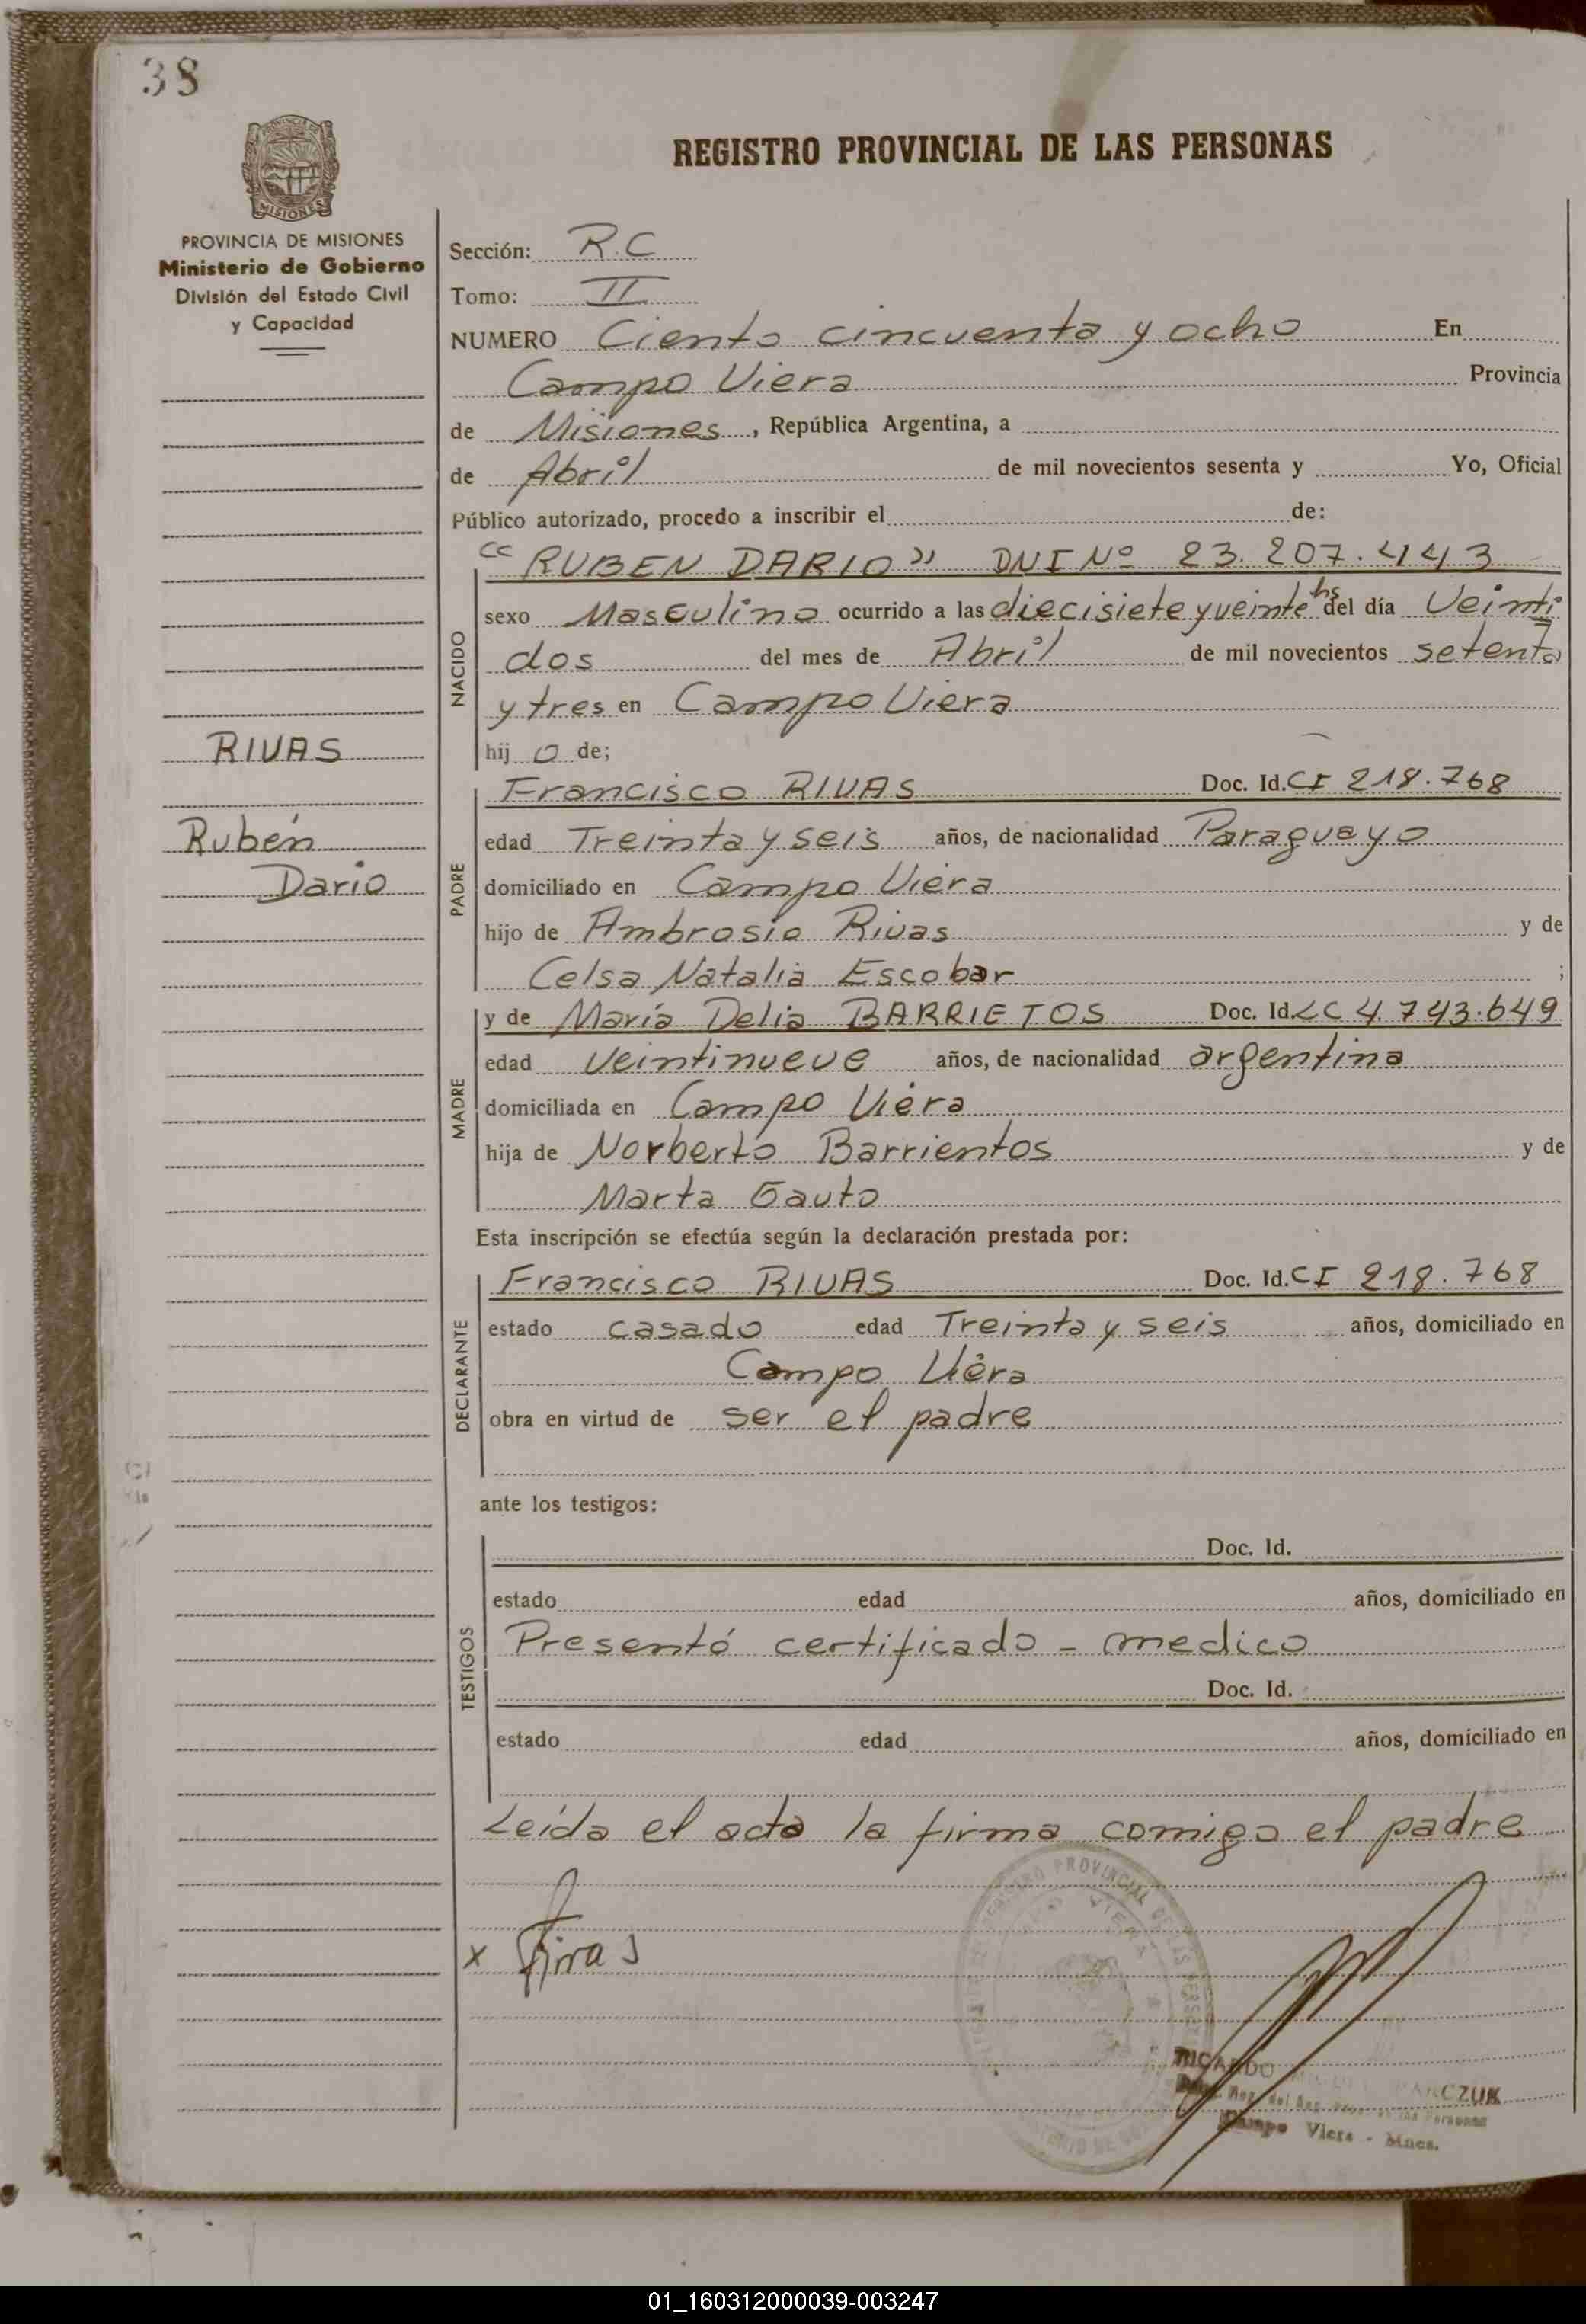 38
PROVINCIA DE MISIONES
Ministerio de Gobierno
División del Estado Civil
y Capacidad
RIVAS
Rubén
Dario
REGISTRO PROVINCIAL DE LAS PERSONAS
Sección: R.C
Tomo: II
NUMERO Ciento cincuenta y ocho En
Campo Viera Provincia
de Misiones, República Argentina, a
de Abril de mil novecientos sesenta y Yo, Oficial
Público autorizado, procedo a inscribir el de:
NACIDO
"RUBEN DARIO" DNI Nº 23.207.443
sexo Masculino ocurrido a las diecisiete y veinte hs del día Veinti
dos del mes de Abril de mil novecientos setenta
y tres en Campo Viera
hijo de;
PADRE
Francisco RIVAS Doc. Id. CI 218.768
edad Treinta y seis años, de nacionalidad Paraguayo
domiciliado en Campo Viera
hijo de Ambrosio Rivas y de
Celsa Natalia Escobar ;
MADRE
y de María Delia BARRIETOS Doc. Id. LC 4.743.649
edad Veintinueve años, de nacionalidad argentina
domiciliada en Campo Viera
hija de Norberto Barrientos y de
Marta Gauto
Esta inscripción se efectúa según la declaración prestada por:
DECLARANTE
Francisco RIVAS Doc. Id. CI 218.768
estado casado edad Treinta y seis años, domiciliado en
Campo Viera
obra en virtud de ser el padre
ante los testigos:
TESTIGOS
Doc. Id.
estado edad años, domiciliado en
Presentó certificado - medico
Doc. Id.
estado edad años, domiciliado en
Leída el acta la firma comigo el padre
x
RICARDO
Campo Viera - Mnes.
01_160312000039-003247